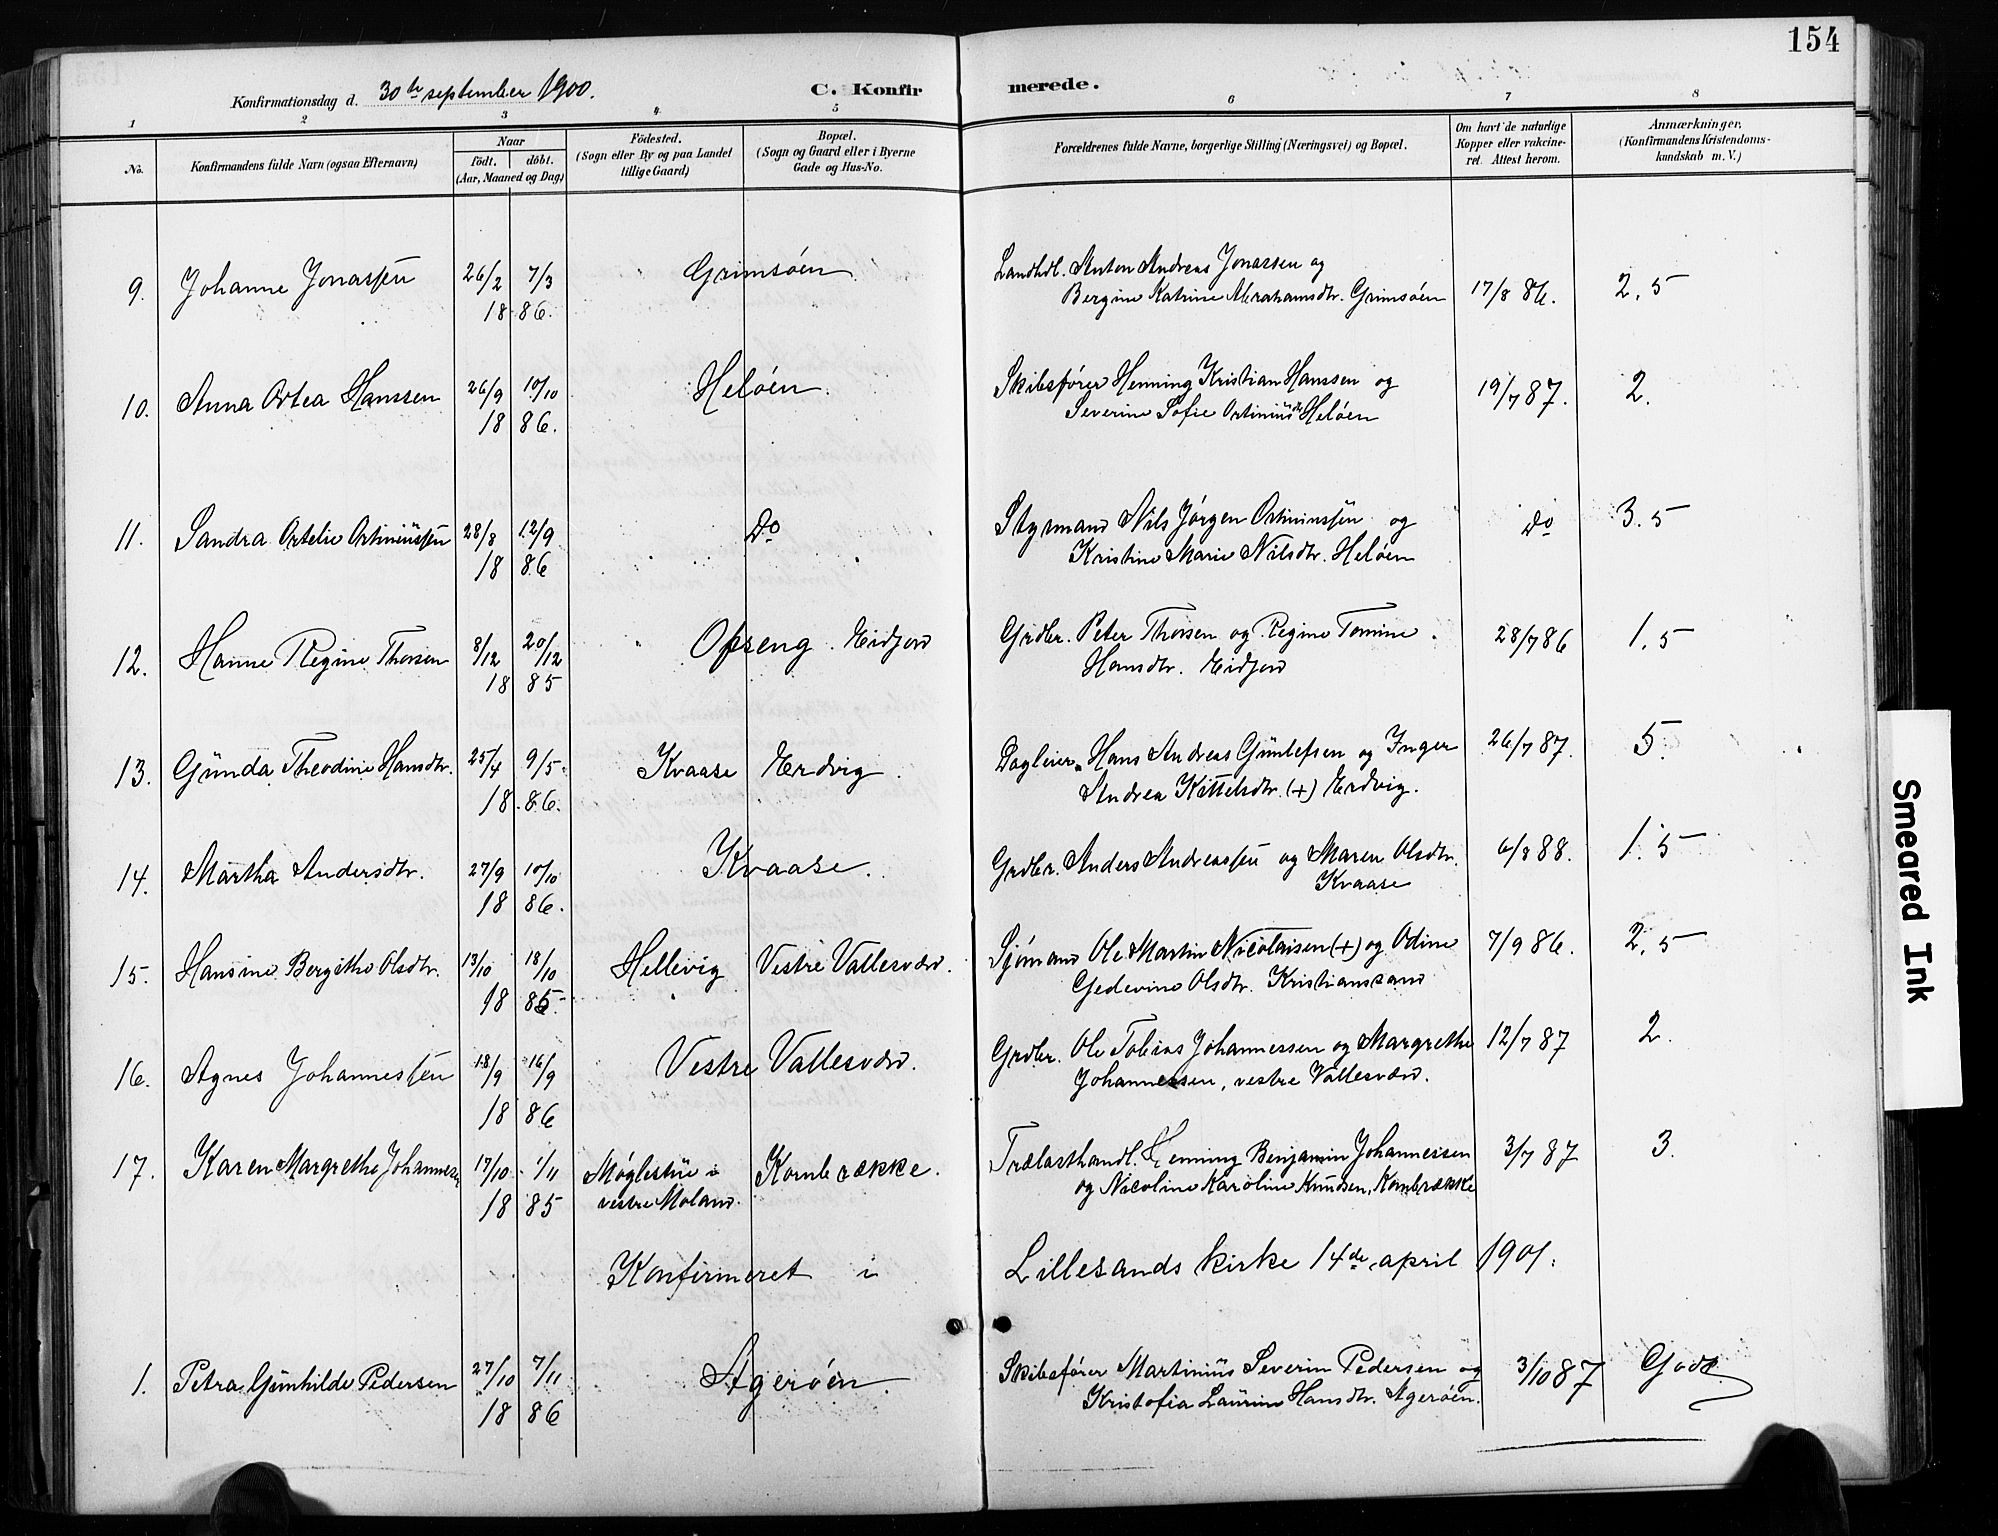 154
Konfirmationsdag d. 30te september 1900.
C. Konfirmerede.
1 2 3 4 5 6 7 8
No.
Konfirmandens fulde Narn (ogsaa Efternavn)
Naar
födt. döbt.
(Aar, Maaned og Dag)
Födested.
(Sogn eller By og paa Landet
tillige Gaard)
Bopæl.
(Sogn og Gaard eller i Byerne
Gade og Hus-No.
Forældrenes fulde Navne, borgerlige Stilling (Næringsvei) og Bopæl.
Om havt de naturlige
Kopper eller vakcine-
ret. Attest herom.
Anmærkninger,
(Konfirmandens Kristendoms-
kundskab m. V.)
9. Johanne Jonassen 26/2 7/3 1886. Grimsøen Landhdl. Anton Andreas Jonassen og
Bergine Katrine Abrahamsdtr. Grimsøen 17/8 86. 2,5
10. Anna Ortea Hanssen 26/9 10/10 1886. Heløen. Skibsfører Henning Kristian Hanssen og
Severine Sofie Ortiniusdtr Heløen 19/7 87. 2.
11. Sandra Ortelie Ortiniussen 28/8 12/9 1886 Do Styrmand Nils Jørgen Ortiniussen og
Kristine Marie Nilsdtr. Heløen Do 3.5
12. Hanne Regine Thorsen 8/12 20/12 1885 Opseng. Eidjord Grdbr. Peter Thorsen og Regine Tomine
Hansdtr. Eidjord 28/7 86 1,5
13. Gunda Theodine Hansdtr. 25/4 9/5 1886. Kvaase Erdvig Dagleier Hans Andreas Gunlefsen og Inger
Andrea Kittelsdtr. (+) Erdvig. 26/7 87. 5.
14. Martha Andersdtr. 27/9 10/10 1886. Kvaase. Grdbr. Anders Andreassen og Maren Olsdtr.
Kvaase 6/8 88. 1.5
15. Hansine Bergithe Olsdtr. 13/10 18/10 1885. Hellevig Vestre Vallesverd. Sjømand Ole Martin Nicolaisen (+) og Odine
Gedevine Olsdtr. Kristianssand 7/9 86. 2,5
16. Agnes Johannessen 18/9 16/9 1886 Vestre Vallesverd. Grdbr. Ole Tobias Johannessen og Margrethe
Johannessen, vestre Vallesværd. 12/7 87 2.
17. Karen Margrethe Johannessen 17/10 1/11 1885 Møglestue i
vestre Moland. Kornbrække. Trælasthandl. Henning Benjamin Johannessen
og Nicoline Karoline Knudsen, Kornbrække 3/7 87 3.
Konfirmeret i Lillesands kirke 14de april 1901.
1. Petra Gunhilde Pedersen 27/10 7/11 1886 Agerøen. Skibsfører Martinius Severin Pedersen og
Kristofia Laurine Hansdtr. Agerøen. 3/10 87 Godt
Smeared Ink